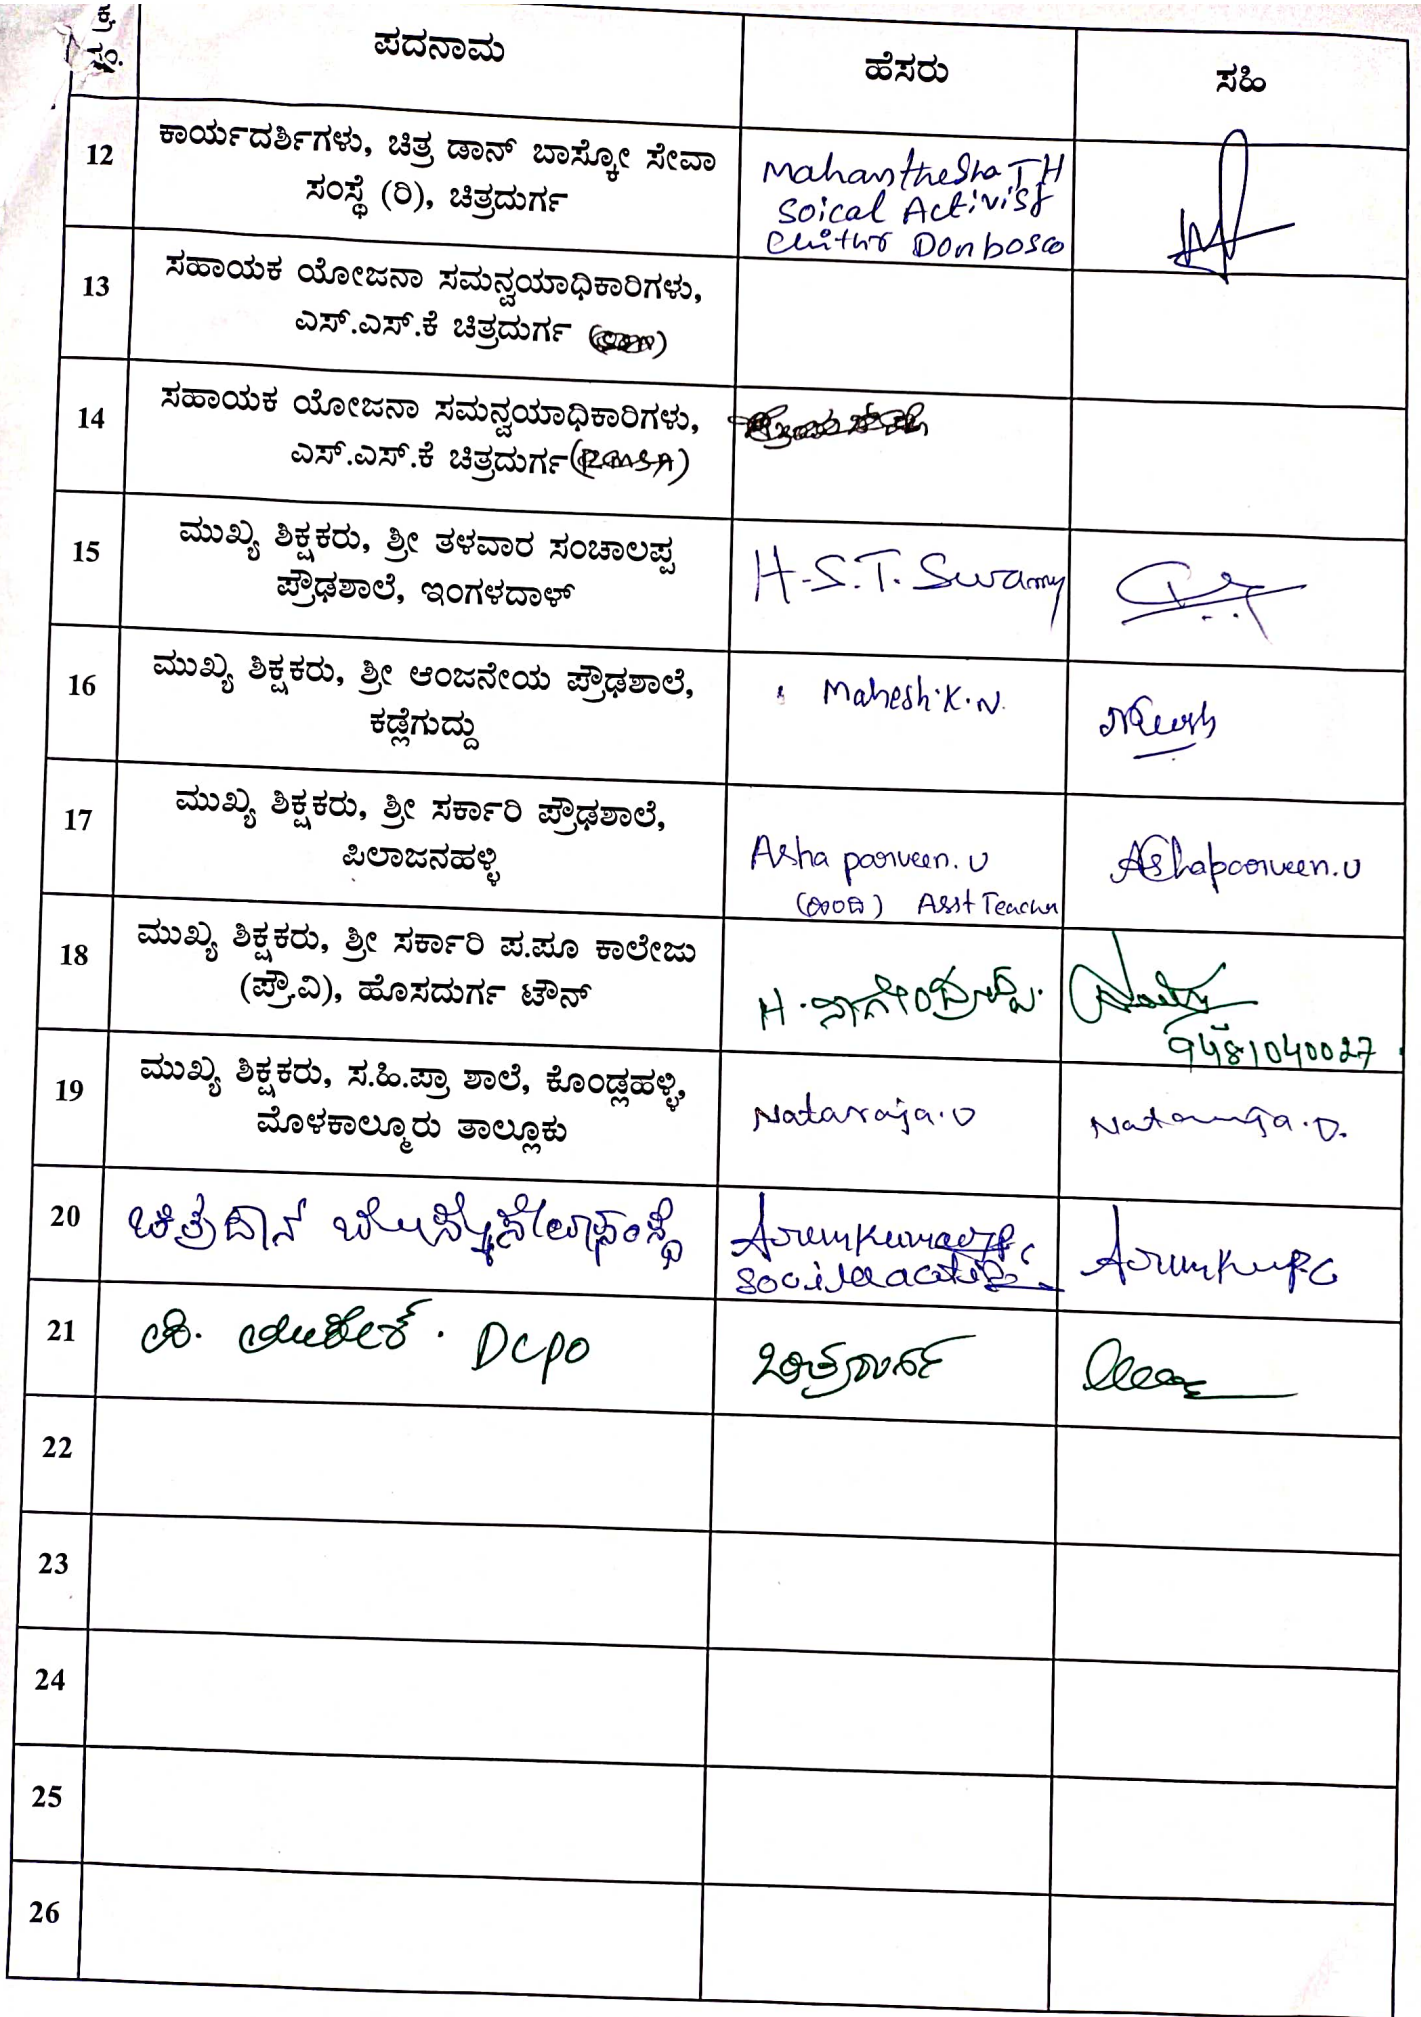 ಕ್ರ ಸಂ. ಪದನಾಮ ಹೆಸರು ಸಹಿ
12 ಕಾರ್ಯದರ್ಶಿಗಳು, ಚಿತ್ರ ಡಾನ್ ಬಾಸ್ಕೋ ಸೇವಾ
ಸಂಸ್ಥೆ (ರಿ), ಚಿತ್ರದುರ್ಗ
Mahanthesha T H
Soical Activist
Chithra Donbosco
13 ಸಹಾಯಕ ಯೋಜನಾ ಸಮನ್ವಯಾಧಿಕಾರಿಗಳು,
ಎಸ್.ಎಸ್.ಕೆ ಚಿತ್ರದುರ್ಗ
14 ಸಹಾಯಕ ಯೋಜನಾ ಸಮನ್ವಯಾಧಿಕಾರಿಗಳು,
ಎಸ್.ಎಸ್.ಕೆ ಚಿತ್ರದುರ್ಗ (RMSA)
15 ಮುಖ್ಯ ಶಿಕ್ಷಕರು, ಶ್ರೀ ತಳವಾರ ಸಂಚಾಲಪ್ಪ
ಪ್ರೌಢಶಾಲೆ, ಇಂಗಳದಾಳ್
H.S.T. Swamy
16 ಮುಖ್ಯ ಶಿಕ್ಷಕರು, ಶ್ರೀ ಆಂಜನೇಯ ಪ್ರೌಢಶಾಲೆ,
ಕಡ್ಲೆಗುದ್ದು
Mahesh.K.N.
17 ಮುಖ್ಯ ಶಿಕ್ಷಕರು, ಶ್ರೀ ಸರ್ಕಾರಿ ಪ್ರೌಢಶಾಲೆ,
ಪಿಲಾಜನಹಳ್ಳಿ
Asha parveen. U Ashaparveen. U
Asst Teacher
18 ಮುಖ್ಯ ಶಿಕ್ಷಕರು, ಶ್ರೀ ಸರ್ಕಾರಿ ಪ.ಪೂ ಕಾಲೇಜು
(ಪ್ರೌ.ವಿ), ಹೊಸದುರ್ಗ ಟೌನ್
H. ನಾಗೇಂದ್ರಪ್ಪ.
9481040027
19 ಮುಖ್ಯ ಶಿಕ್ಷಕರು, ಸ.ಹಿ.ಪ್ರಾ ಶಾಲೆ, ಕೊಂಡ್ಲಹಳ್ಳಿ,
ಮೊಳಕಾಲ್ಮೂರು ತಾಲ್ಲೂಕು
Nataraja. D Nataraja. D.
20 ಚಿತ್ರಡಾನ್ ಬೋಸ್ಕೋ ಸೇವಾ ಸಂಸ್ಥೆ
Arunkumar
21 DCPO ಚಿತ್ರದುರ್ಗ
22
23
24
25
26